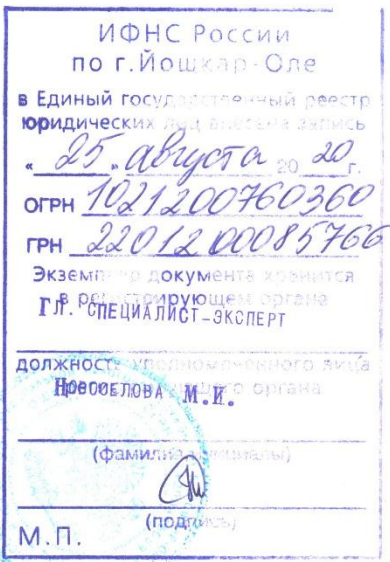 ИФНС России
по г.Йошкар-Оле
в Единый государственный реестр
юридических лиц внесена запись
«25» августа 2020 г.
ОГРН 1021200760360
ГРН 2201200085766
Экземпляр документа хранится
в регистрирующем органе
ГЛ. СПЕЦИАЛИСТ-ЭКСПЕРТ
должность уполномоченного лица
регистрирующего органа
НОВОСЕЛОВА М.И.
(фамилия, инициалы)
(подпись)
М.П.